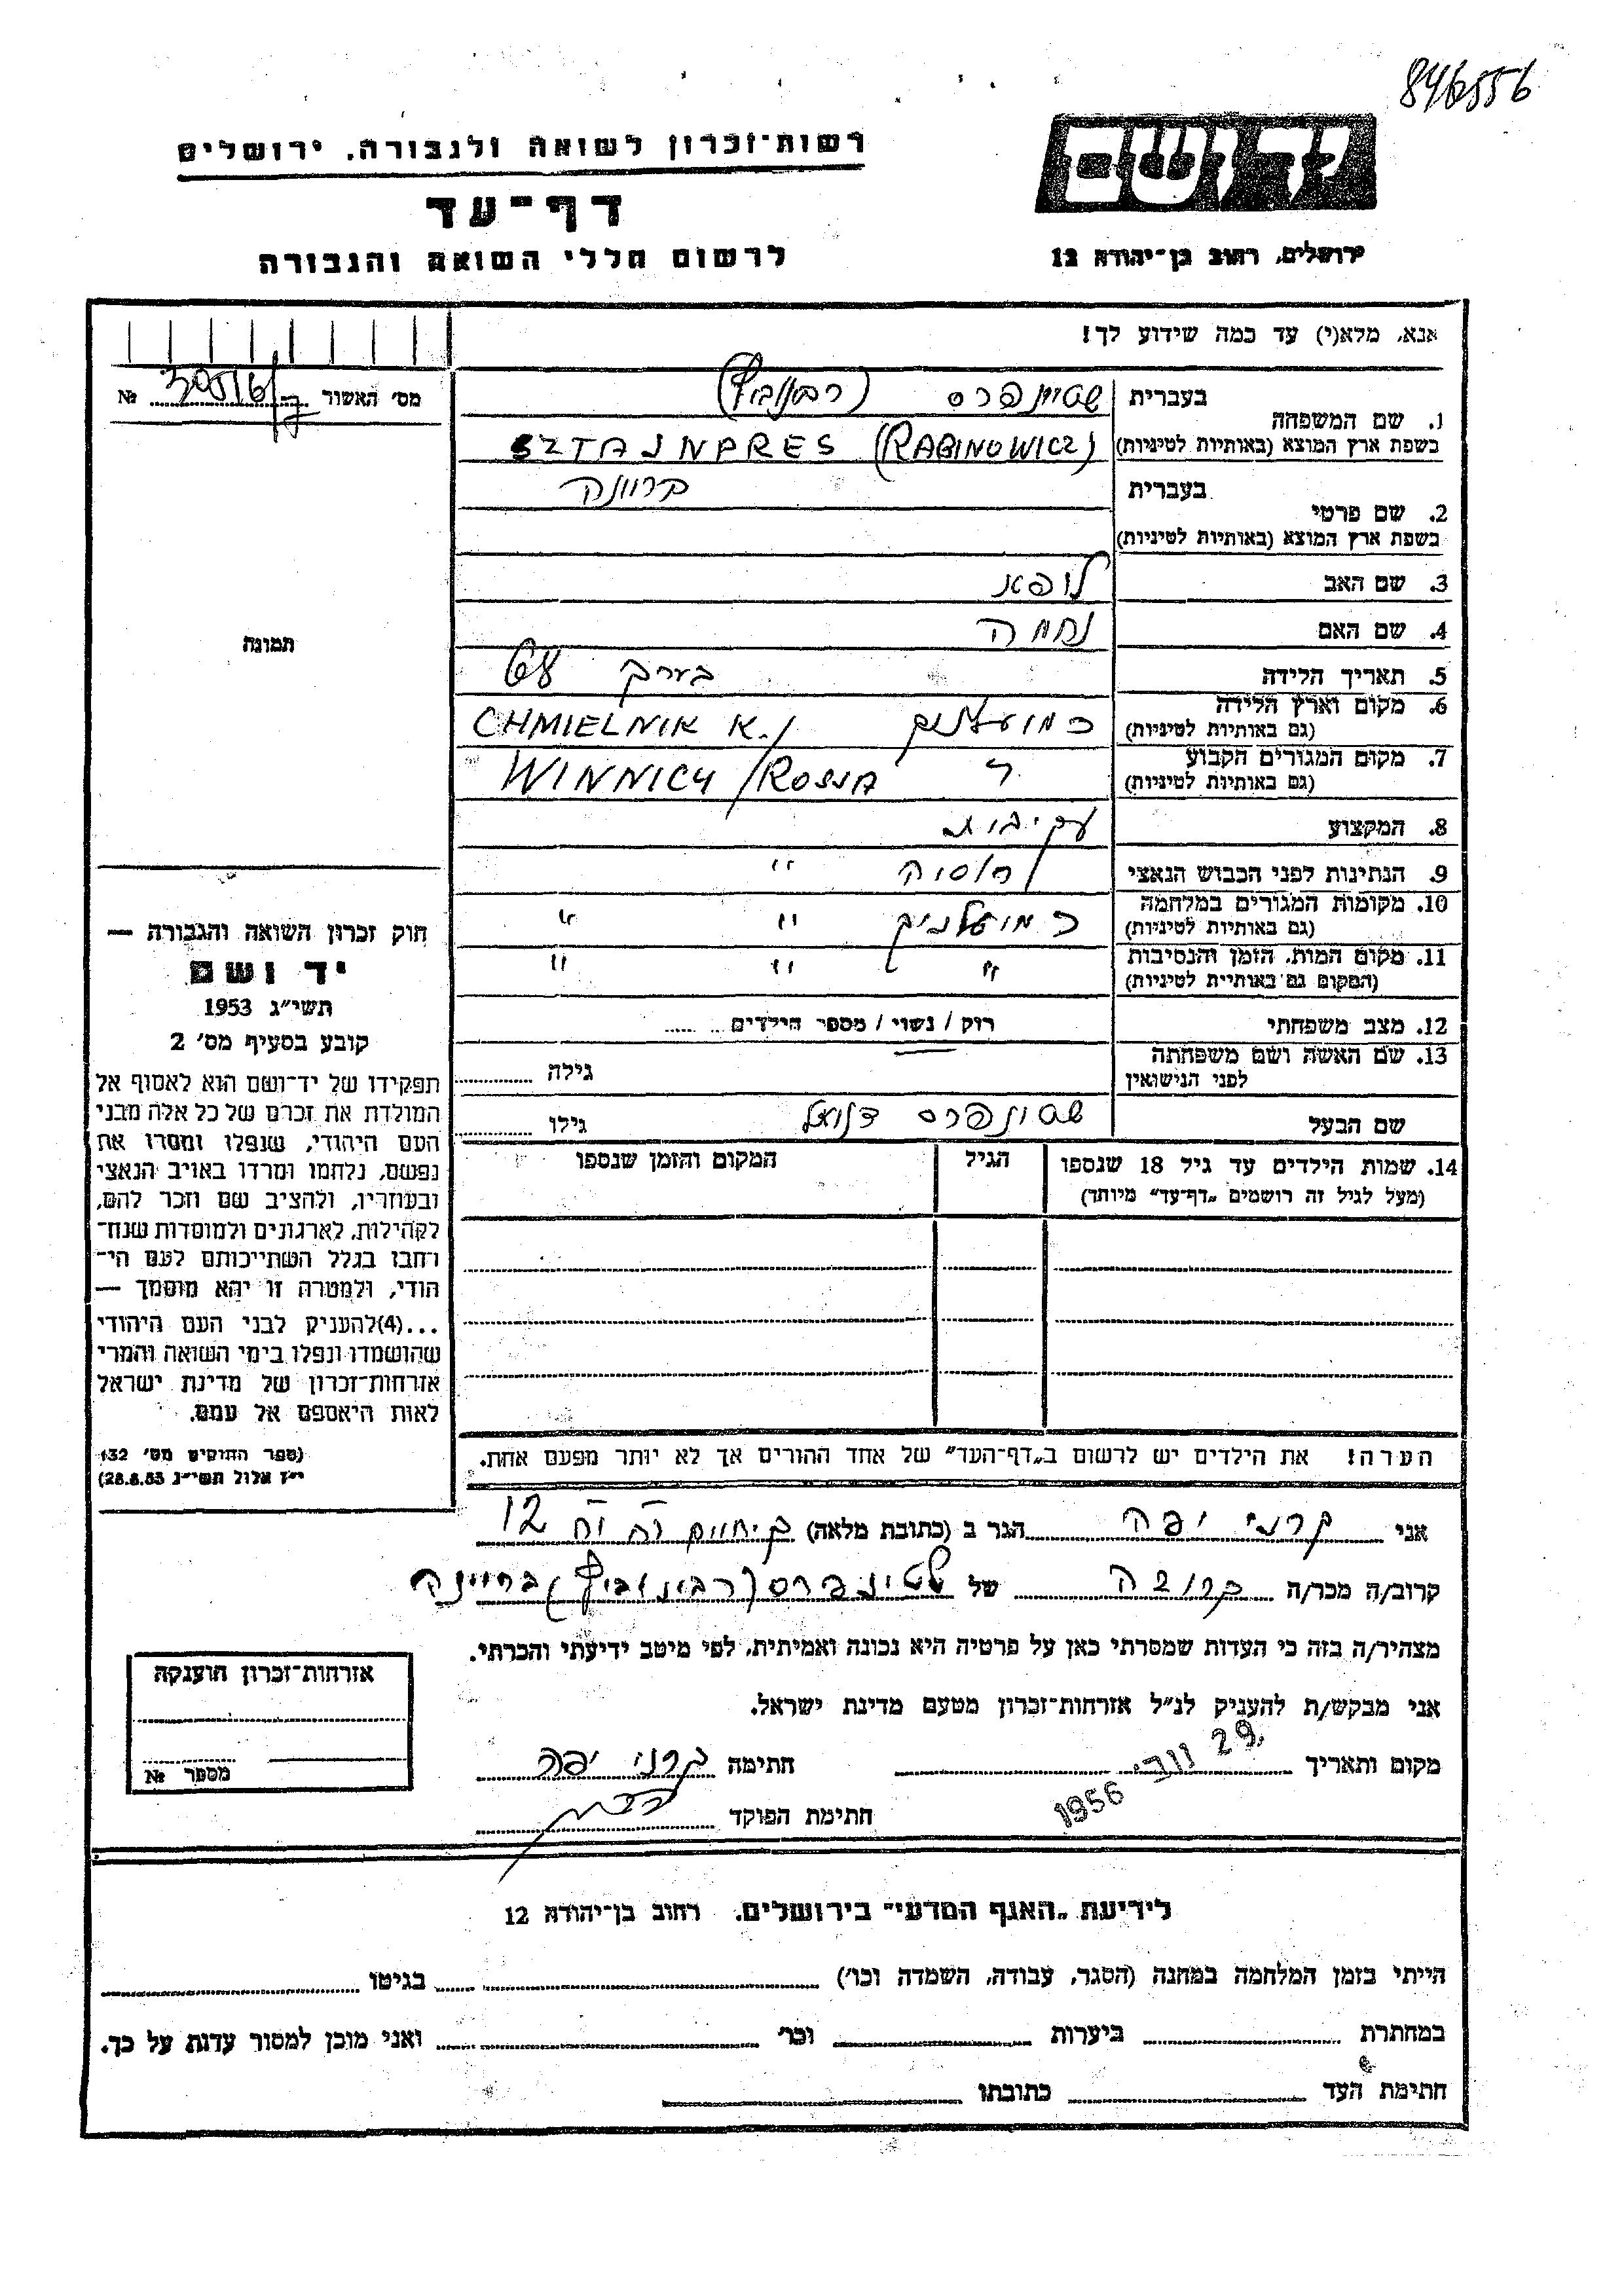 846556
רשות־זכרון לשואה ולגבורה, ירושלים
יד ושם
דף־עד
לרשום חללי השואה והגבורה
ירושלים, רחוב בן־יהודה 12
אנא, מלא(י) עד כמה שידוע לך!
מס׳ האשור №
1. שם המשפחה
בעברית שטיינפרס (רבינוביץ)
בשפת ארץ המוצא (באותיות לטיניות) SZTAJNPRES (RABINOWICZ)
2. שם פרטי
בעברית
בשפת ארץ המוצא (באותיות לטיניות)
3. שם האב ליפא
4. שם האם נחמה
5. תאריך הלידה בערך
6. מקום וארץ הלידה
(גם באותיות לטיניות) CHMIELNIK K./
7. מקום המגורים הקבוע
(גם באותיות לטיניות) WINNICY/ROSJA
8. המקצוע
9. הנתינות לפני הכבוש הנאצי רוסיה "
10. מקומות המגורים במלחמה
(גם באותיות לטיניות) " "
11. מקום המות, הזמן והנסיבות
(המקום גם באותיות לטיניות) " " "
12. מצב משפחתי רוק / נשוי / מספר הילדים
13. שם האשה ושם משפחתה
לפני הנישואין גילה
שם הבעל שטיינפרס דניאל גילו
14. שמות הילדים עד גיל 18 שנספו
(מעל לגיל זה רושמים „דף־עד” מיוחד)
הגיל
המקום והזמן שנספו
הערה! את הילדים יש לרשום ב„דף־העד” של אחד ההורים אך לא יותר מפעם אחת.
תמונה
חוק זכרון השואה והגבורה —
יד ושם
תשי״ג 1953
קובע בסעיף מס׳ 2
תפקידו של יד־ושם הוא לאסוף אל
המולדת את זכרם של כל אלה מבני
העם היהודי, שנפלו ומסרו את
נפשם, נלחמו ומרדו באויב הנאצי
ובעוזריו, ולהציב שם וזכר להם,
לקהילות, לארגונים ולמוסדות שנח־
רחבו בגלל השתייכותם לעם הי־
הודי, ולמטרה זו יהא מוסמך —
...(4)להעניק לבני העם היהודי
שהושמדו ונפלו בימי השואה והמרי
אזרחות־זכרון של מדינת ישראל
לאות היאספם אל עמם.
(ספר החוקים מס׳ 132
י״ז אלול תשי״ג 28.8.53)
אני קרני יפה הגר ב (כתובת מלאה) ק. חיים 12
קרוב/ה מכר/ה קרובה של שטינפרס (רבינוביץ)
מצהיר/ה בזה כי העדות שמסרתי כאן על פרטיה היא נכונה ואמיתית, לפי מיטב ידיעתי והכרתי.
אני מבקש/ת להעניק לנ״ל אזרחות־זכרון מטעם מדינת ישראל.
מקום ותאריך 29 נוב׳ 1956 חתימה קרני יפה
חתימת הפוקד
אזרחות־זכרון הוענקה
מספר №
לידיעת „האגף המדעי” בירושלים, רחוב בן־יהודה 12
הייתי בזמן המלחמה במחנה (הסגר, עבודה, השמדה וכו׳) בגיטו
במחתרת ביערות וכו׳ ואני מוכן למסור עדות על כך.
חתימת העד כתובתו